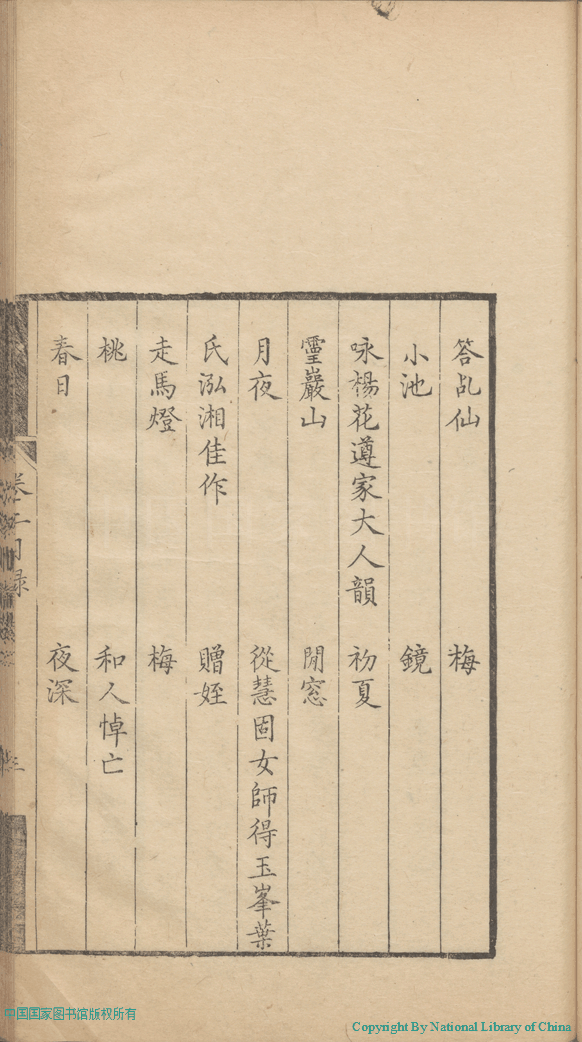 答乩仙　梅
小池　鏡
咏楊花遵家大人韻　初夏
霊巖山　閒窓
月夜　從慧固女師得玉峯葉
氏泓湘佳作　贈姪
走馬燈　梅
桃　和人悼亡
春日　夜深
目録
中国国家图书馆版权所有
Copyright By National Library of China